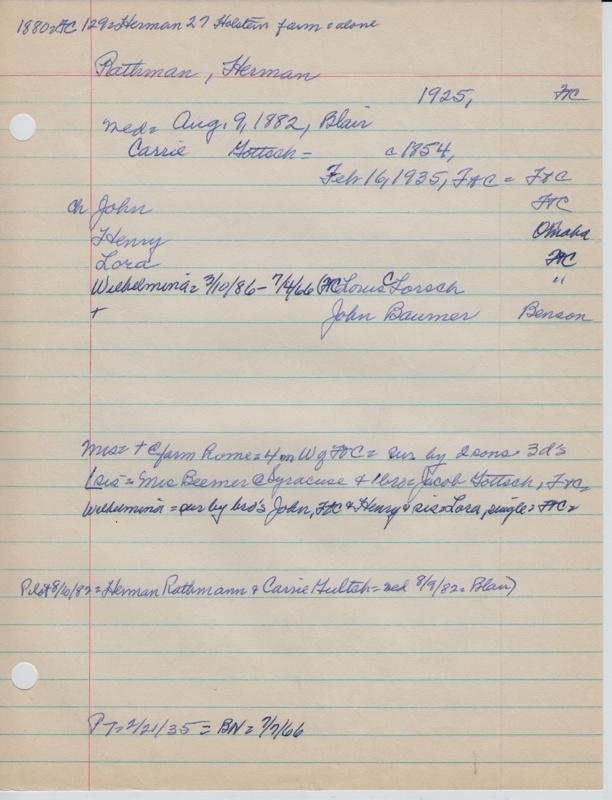 1880=FtC 129=Herman 27 Holstein farm = alone
Rathman, Herman
1925, FtC
Med= Aug. 9, 1882, Blair
Carrie Gottsch = c 1854,
Feb 16, 1935, FtC = FtC
Ch John FtC
Henry Omaha
Lora FtC
Wilhelmina = 3/10/86 - 7/4/66 FtC Louis C Lorsch "
+ John Baumer Benson
Mrs = + @ farm Rome = 4 m W of FtC = sur by 2 sons + 3 d's
1 sis = Mrs Beemer @ Syracuse + 1 bro = Jacob Gottsch, FtC =
Wilhelmina = sur by bro's John, FtC + Henry + sis = Lora, single = FtC =
Pilot 8/10/82 = Herman Rathmann + Carrie Gultsh = med 8/9/82 = Blair)
PT = 2/21/35 = BN = 7/7/66